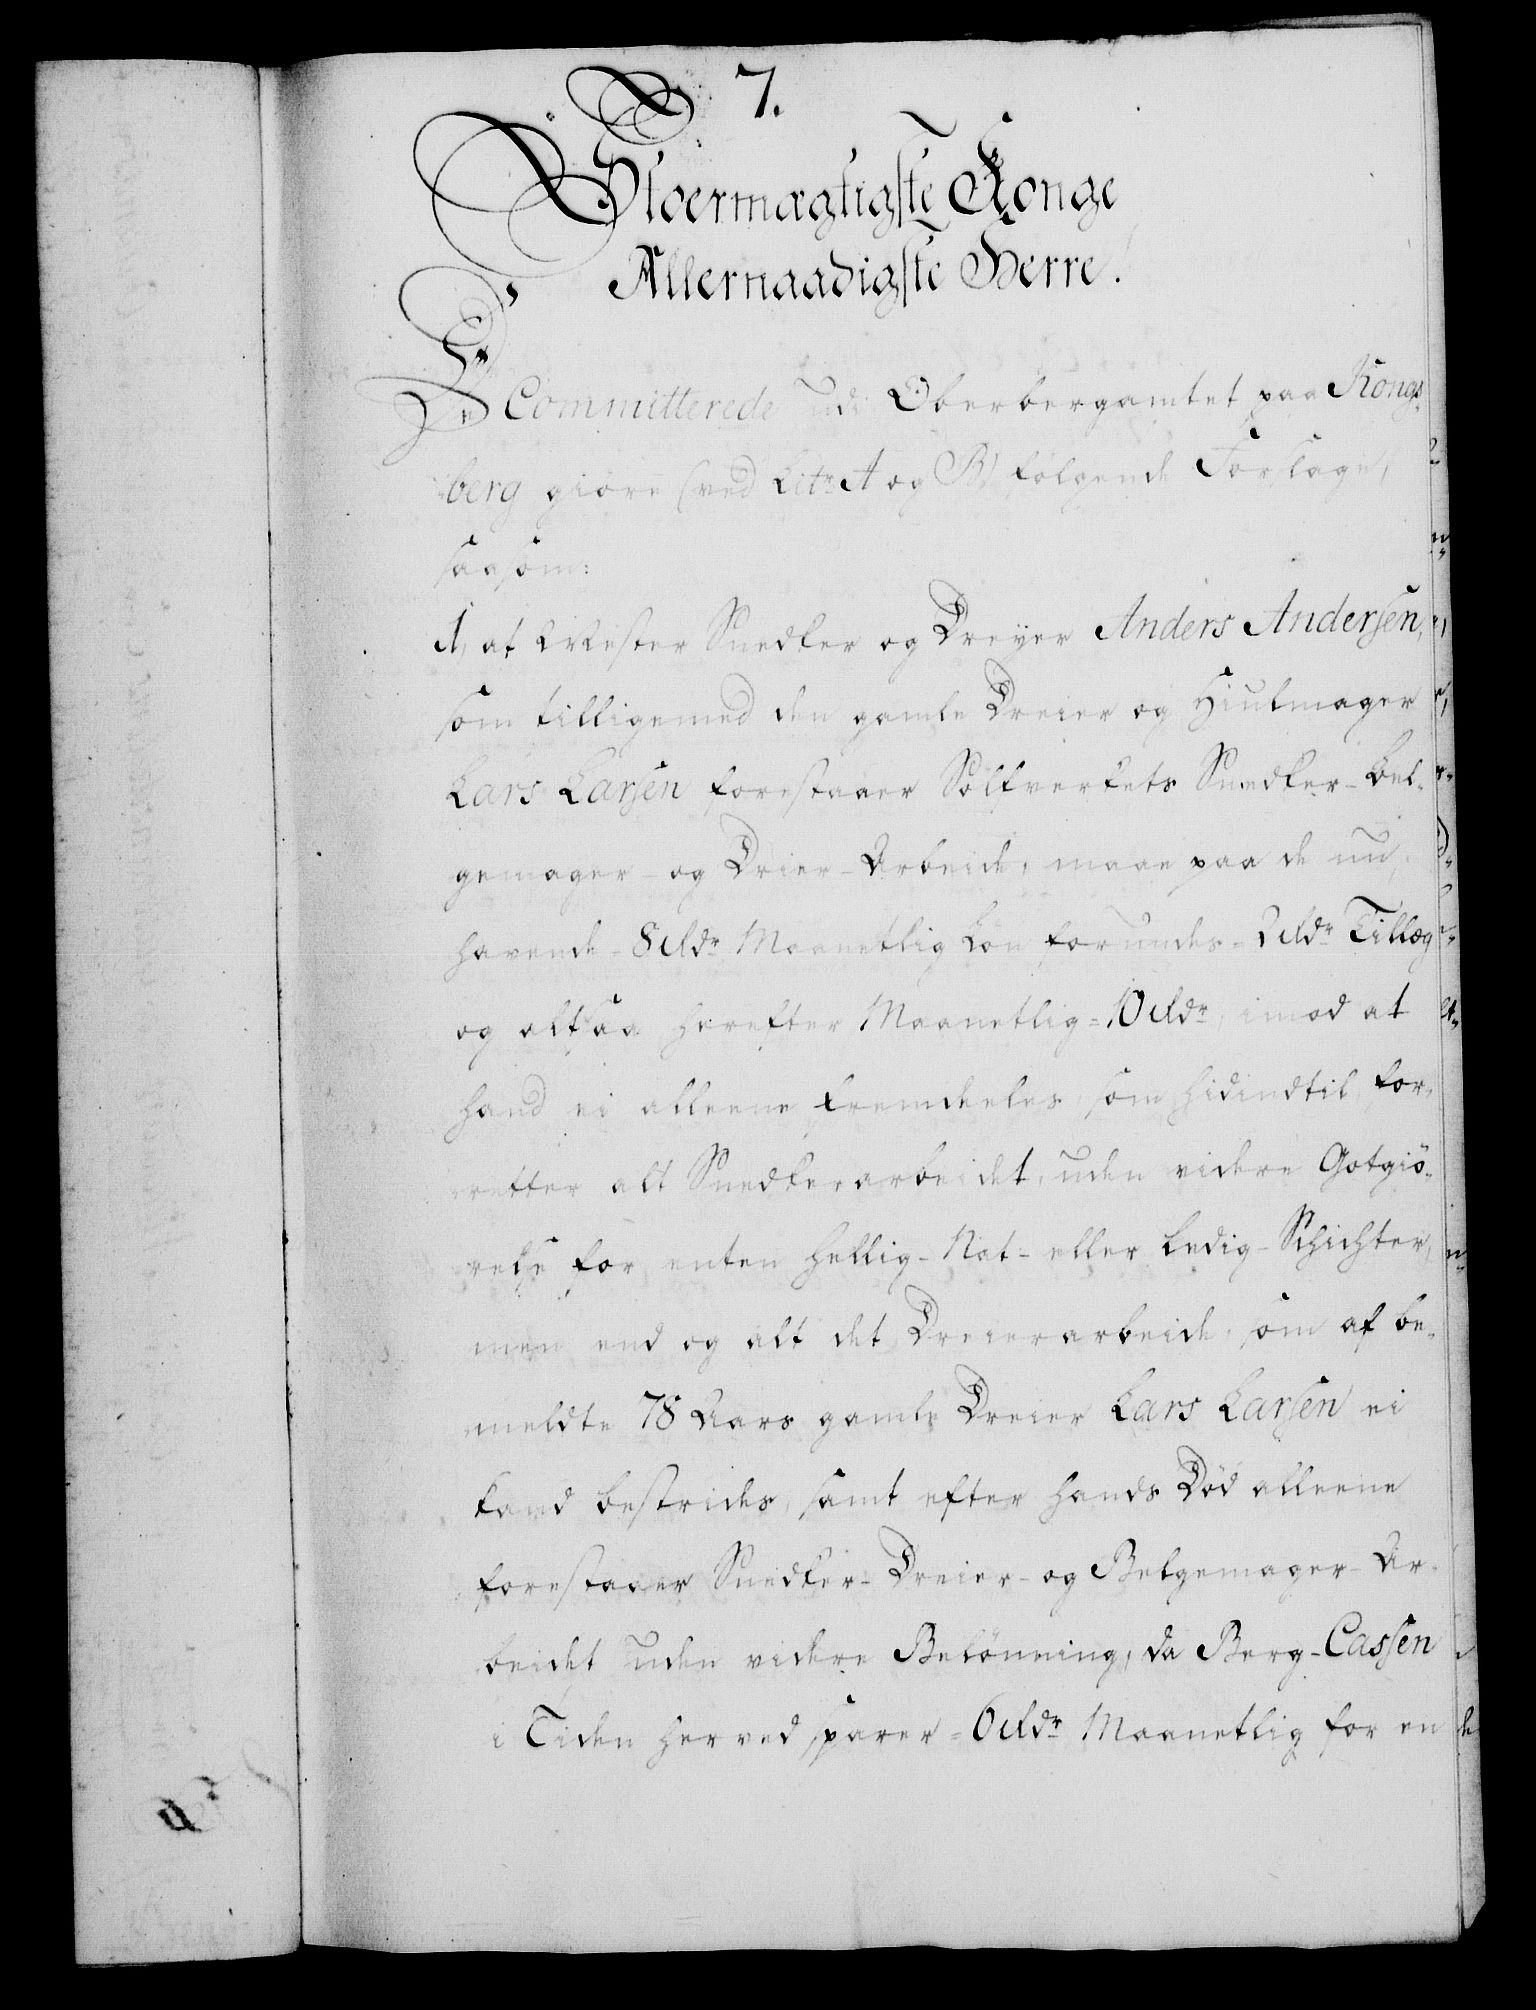 7.
Stoermægtigste Konge
Allernaadigste Herre.
De Committerede udi Oberbergamtet paa Kongs-
berg giøre (ved Litr A og B) følgende Forslage,
saasom:
1, at Mester Snedker og Dreyer Anders Andersen,
som tilligemed den gamle Dreier og Hiulmager
Lars Larsen forestaaer Sølfverkets Snedker- Bel-
gemager- og Dreier-Arbeide, maae paa de nu,
havende - 8 Rdr Maanetlig Løn forundes - 2 Rdr Tillæg
og altsaa herefter Maanetlig = 10 Rdr, imod at
hand ei alleene fremdeeles, som hidindtil, for-
retter alt Snedkerarbeidet, uden videre Gotgiø-
relse for enten Hellig- Nat- eller Ledig-Schichter,
men end og alt det Dreierarbeide, som af be-
meldte 78 Aars gamle Dreier Lars Larsen ei
kand bestrides, samt efter hands Død alleene
forestaaer Snedker- Dreier- og Belgemager-Ar-
beidet uden videre Belønning, da Berg-Cassen
i Tiden herved sparer = 6 Rdr Maanetlig for en